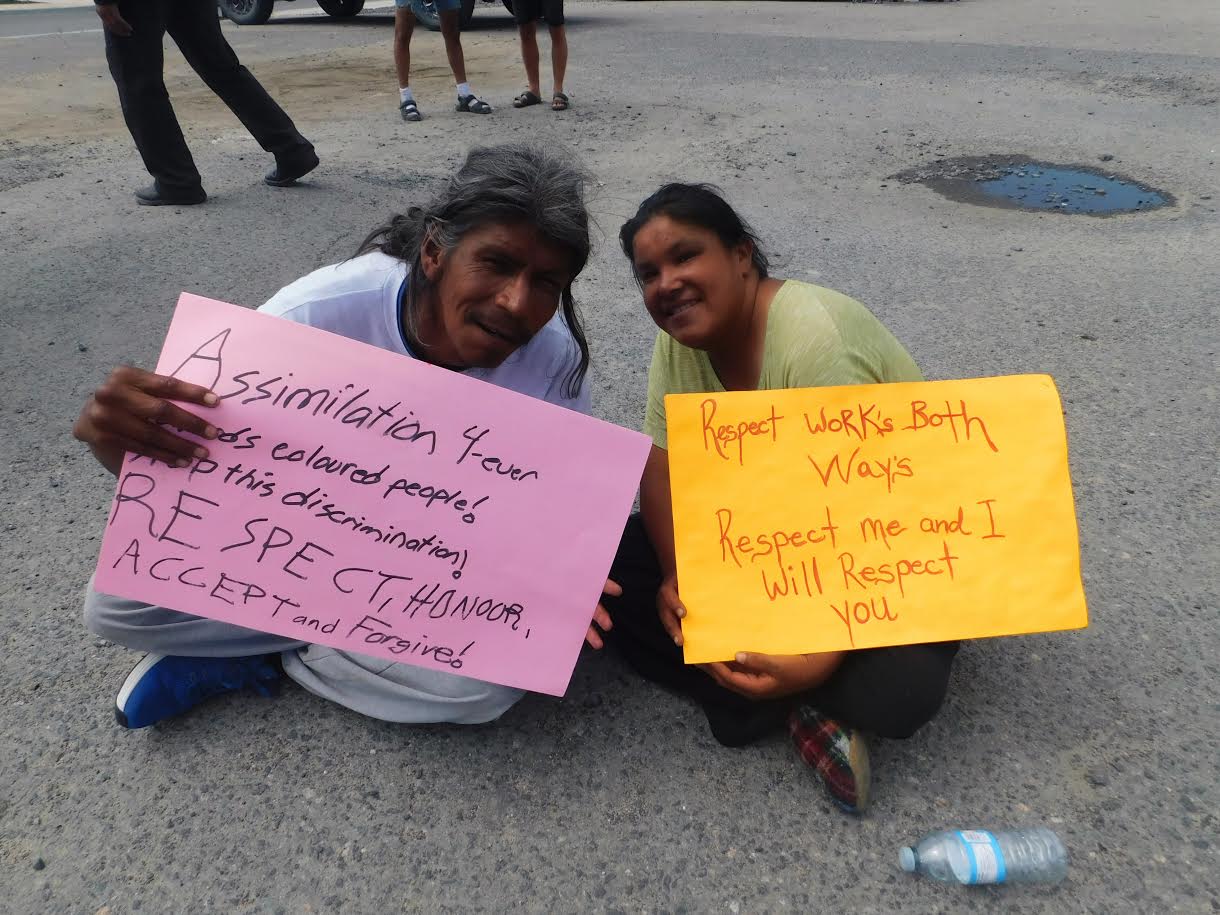 Assimilation 4-ever
coloured people!
this discrimination!
RESPECT, HONOUR,
ACCEPT and Forgive!
Respect WORK's Both
Way's
Respect me and I
Will Respect
you